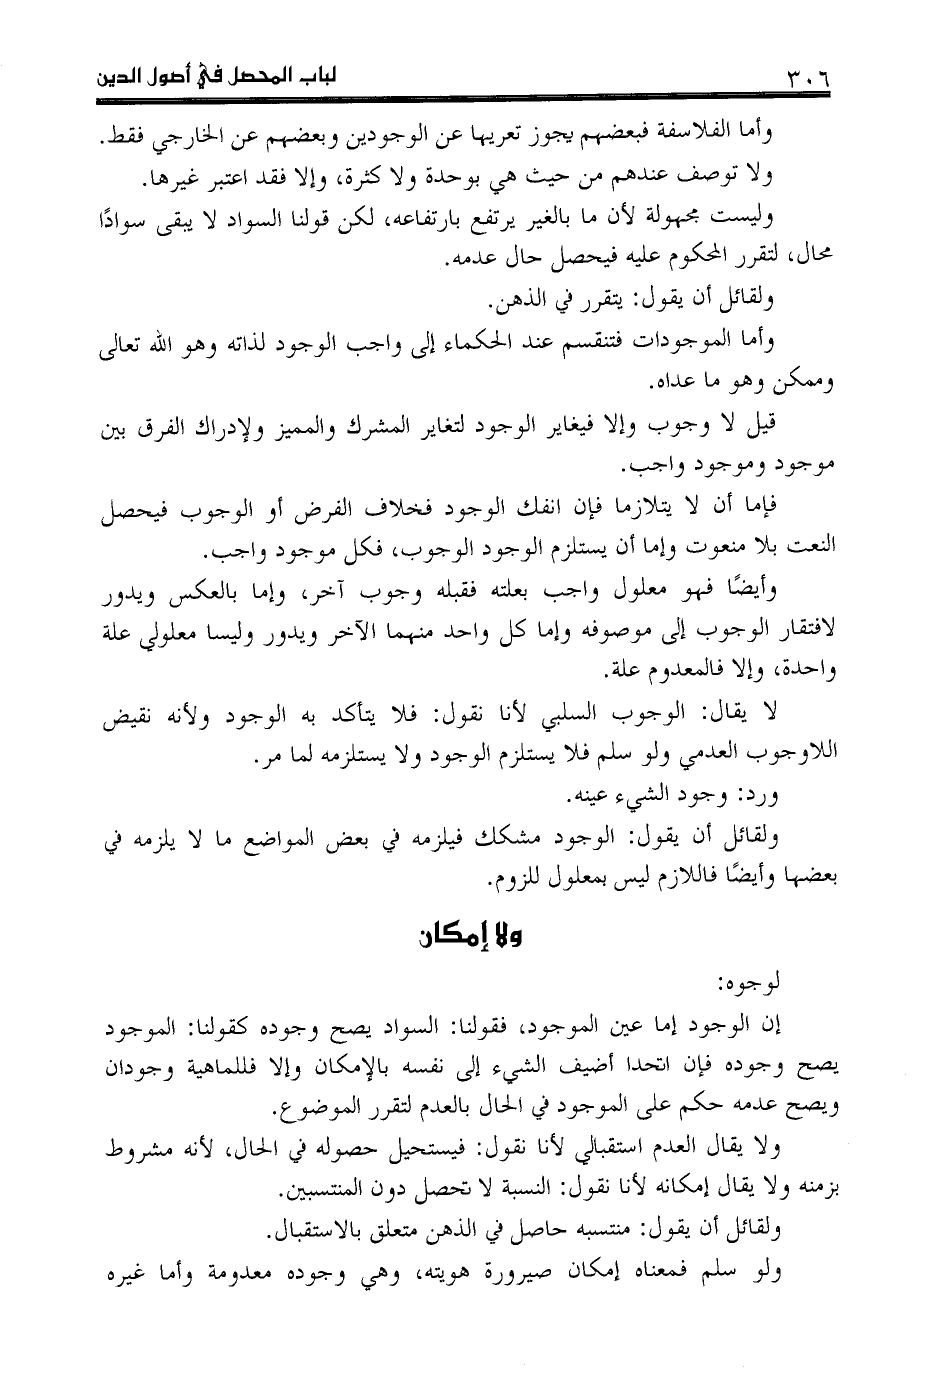 ٣٠٦ لباب المحصل في أصول الدين
وأما الفلاسفة فبعضهم يجوز تعريها عن الوجودين وبعضهم عن الخارجي فقط.
ولا توصف عندهم من حيث هي بوحدة ولا كثرة، وإلا فقد اعتبر غيرها.
وليست مجهولة لأن ما بالغير يرتفع بارتفاعه، لكن قولنا السواد لا يبقى سوادًا
محال، لتقرر المحكوم عليه فيحصل حال عدمه.
ولقائل أن يقول: يتقرر في الذهن.
وأما الموجودات فتنقسم عند الحكماء إلى واجب الوجود لذاته وهو الله تعالى
وممكن وهو ما عداه.
قيل لا وجوب وإلا فيغاير الوجود لتغاير المشرك والمميز ولإدراك الفرق بين
موجود وموجود واجب.
فإما أن لا يتلازما فإن انفك الوجود فخلاف الفرض أو الوجوب فيحصل
النعت بلا منعوت وإما أن يستلزم الوجود الوجوب، فكل موجود واجب.
وأيضًا فهو معلول واجب بعلته فقبله وجوب آخر، وإما بالعكس ويدور
لافتقار الوجوب إلى موصوفه وإما كل واحد منهما الآخر ويدور وليسا معلولي علة
واحدة، وإلا فالمعدوم علة.
لا يقال: الوجوب السلبي لأنا نقول: فلا يتأكد به الوجود ولأنه نقيض
اللاوجوب العدمي ولو سلم فلا يستلزم الوجود ولا يستلزمه لما مر.
ورد: وجود الشيء عينه.
ولقائل أن يقول: الوجود مشكك فيلزمه في بعض المواضع ما لا يلزمه في
بعضها وأيضًا فاللازم ليس بمعلول للزوم.
ولا إمكان
لوجوه:
إن الوجود إما عين الموجود، فقولنا: السواد يصح وجوده كقولنا: الموجود
يصح وجوده فإن اتحدا أضيف الشيء إلى نفسه بالإمكان وإلا فللماهية وجودان
ويصح عدمه حكم على الموجود في الحال بالعدم لتقرر الموضوع.
ولا يقال العدم استقبالي لأنا نقول: فيستحيل حصوله في الحال، لأنه مشروط
بزمنه ولا يقال إمكانه لأنا نقول: النسبة لا تحصل دون المنتسبين.
ولقائل أن يقول: منتسبه حاصل في الذهن متعلق بالاستقبال.
ولو سلم فمعناه إمكان صيرورة هويته، وهي وجوده معدومة وأما غيره